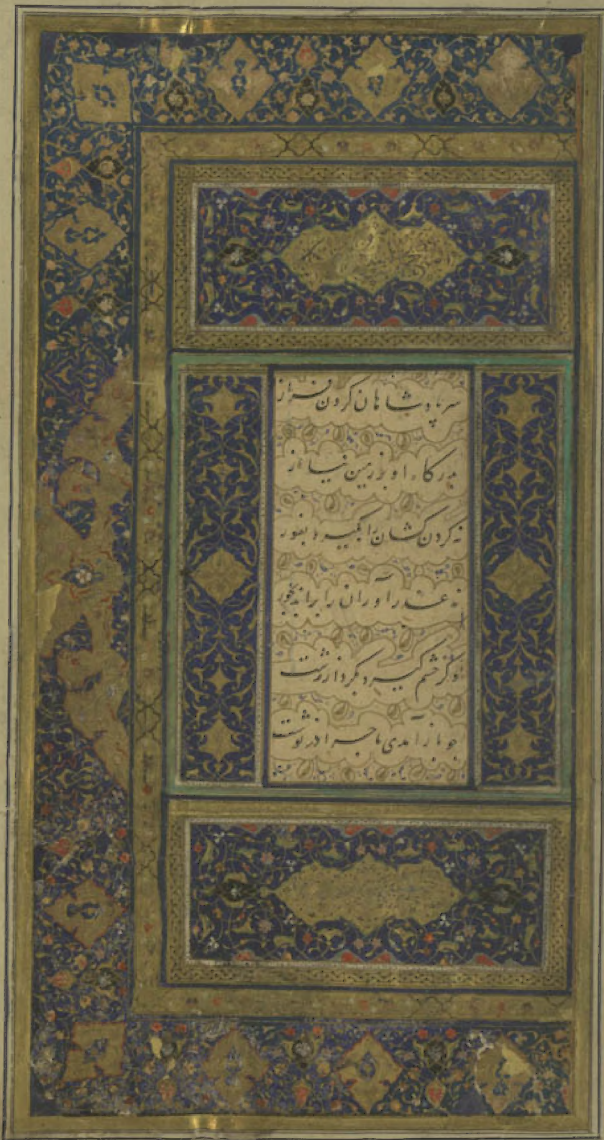 سر پادشاهان کردن فراز
بدرکاه او بر زمین نیاز
نه کردن کشان را بگیرد بفور
نه عذر آوران را براند بجور
وکر خشم کیرد بکردار زشت
جو باز آمدی ماجرا در نوشت